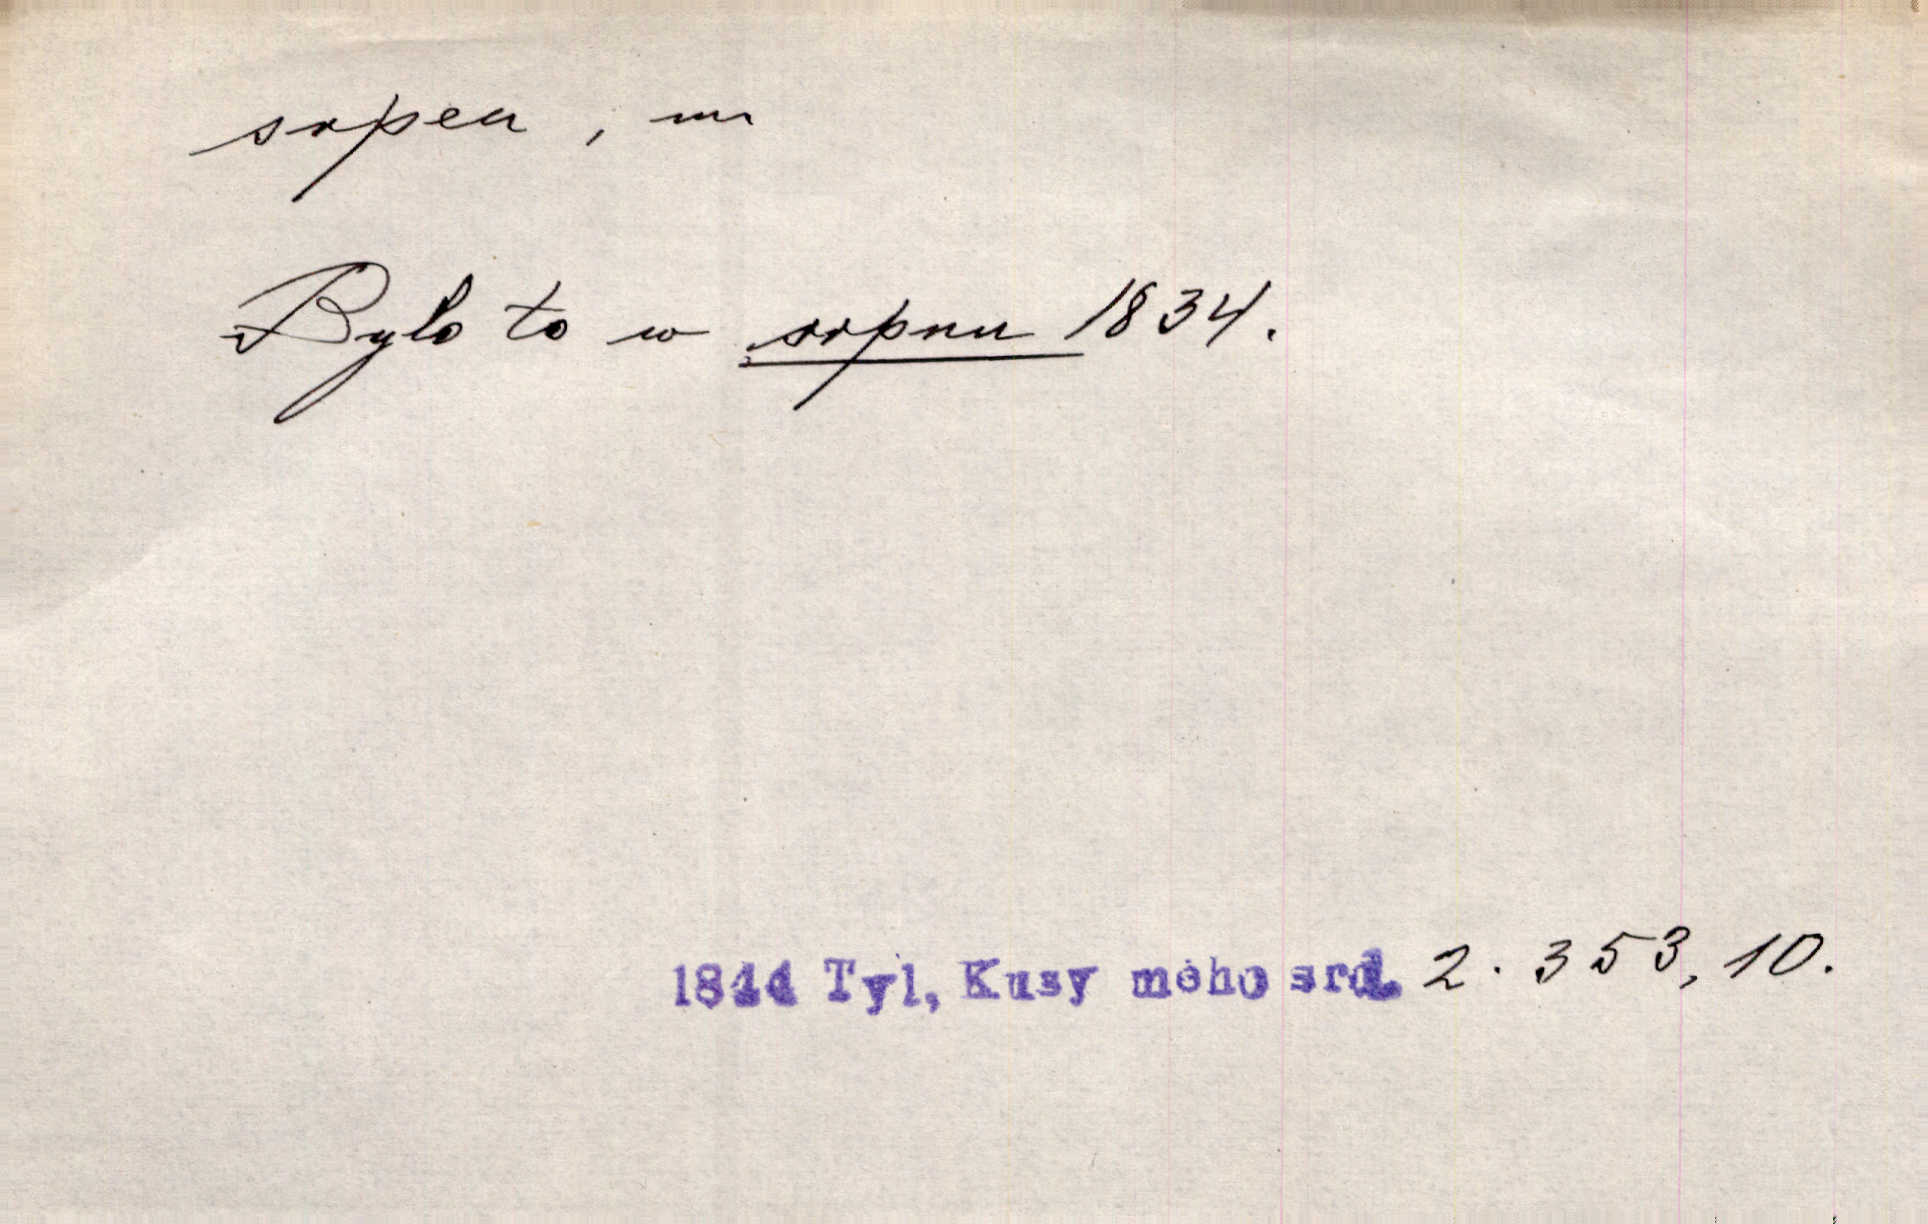 srpen, m
Bylo to w srpnu 1834.
1844 Tyl, Kusy mého srd. 2. 353, 10.